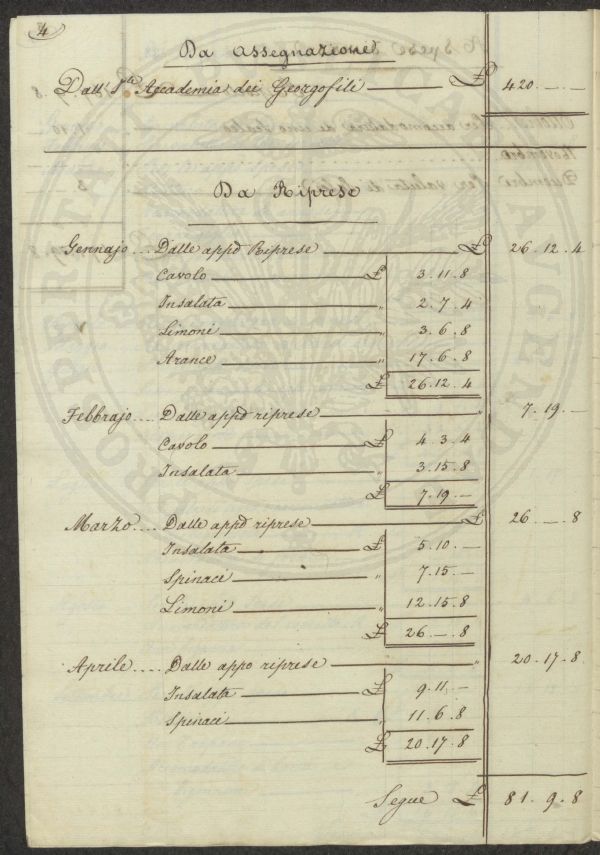 4
Da Assegnazione
Dall' Iᵉ Accademia dei Georgofili £ 420.—.—
Da Riprese
Gennajo.... Dalle appᵒ Riprese £ 26.12.4
Cavolo £ 3.11.8
Insalata „ 2.7.4
Limoni „ 3.6.8
Arance „ 17.6.8
£ 26.12.4
Febbrajo.... Dalle appᵒ riprese „ 7.19.—
Cavolo £ 4.3.4
Insalata „ 3.15.8
£ 7.19.—
Marzo.... Dalle appᵒ riprese £ 26.—.8
Insalata £ 5.10.—
Spinaci „ 7.15.—
Limoni „ 12.15.8
£ 26.—.8
Aprile.... Dalle appᵒ riprese „ 20.17.8
Insalata £ 9.11.—
Spinaci „ 11.6.8
£ 20.17.8
Segue £ 81.9.8